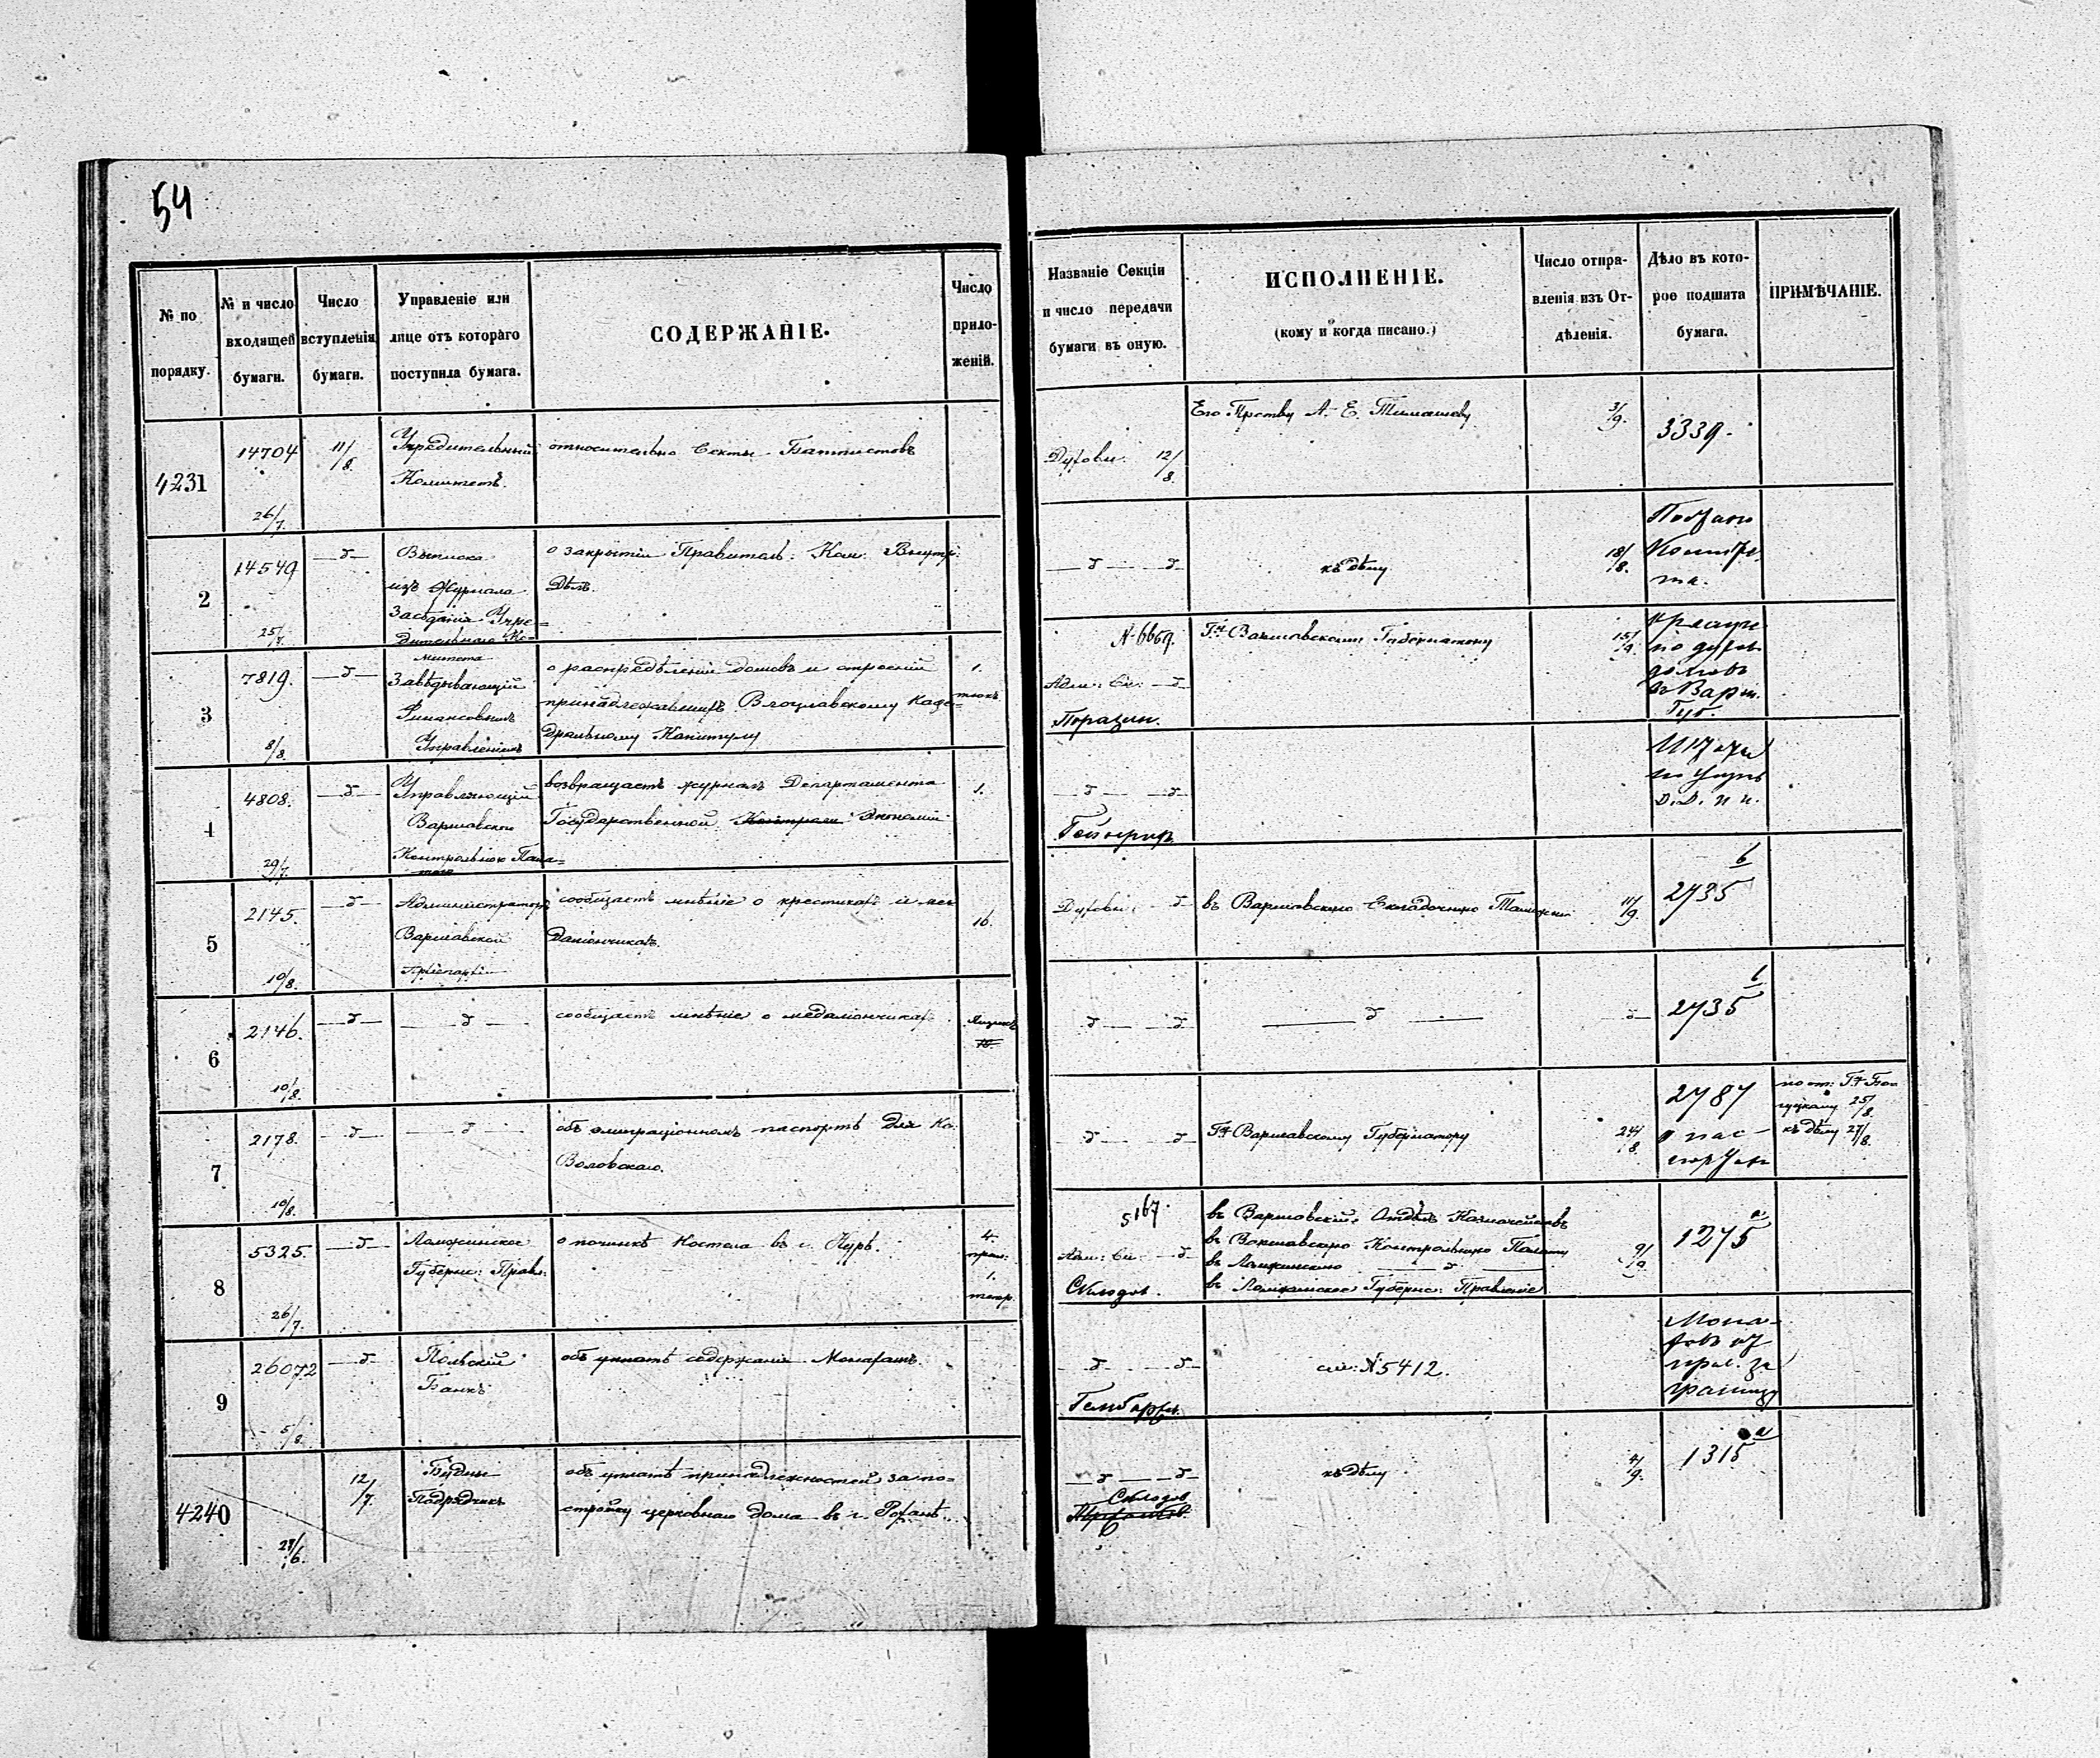 54
№ по
порядку.
№ и число
входящей
бумаги.
Число
вступленія
бумаги.
Управленіе или
лице отъ котораго
поступила бумага.
СОДЕРЖАНІЕ.
Число
прило-
женій.
Названіе Секціи
и число передачи
бумаги въ оную.
ИСПОЛНЕНІЕ.
(кому и когда писано.)
Число отпра-
вленія изъ От-
дѣленія.
Дѣло въ кото-
рое подшита
бумага.
ПРИМѢЧАНІЕ.
4231
14704
26/7.
11/8.
Учредительный
Комитетъ.
относительно Секты Баптистовъ
Духовн. 12/8.
Его Прству А. Е. Тимашеву
3/9.
3339.
2
14549
25/7.
—д—
Выписка
изъ Журнала
Засѣданія Учре=
дительнаго Ко=
митета
о закрытіи Правитель. Ком. Внутр.
Дѣлъ.
—д— —д—
къ дѣлу
18/8.
3
7819.
8/8.
—д—
Завѣдывающій
Финансовымъ
Управленіемъ
о распредѣленіи домовъ и строеній
принадлежавшихъ Влоцлавскому Каѳе=
дральному Капитулу
1.
№ 6669.
Адм: Си: —д—
Гну Варшавскому Губернатору
15/9.
по духов.
домовъ
въ Варш.
Губ.
4
4808.
29/7.
—д—
Управляющій
Варшавскою
Контрольною Пала=
тою
возвращаетъ журналъ Департамента
Государственной Контроли Экономіи
1.
—д— —д—
Гейнрих
Д. Д. И. И.
5
2145.
10/8.
—д—
Администраторъ
Варшавской
сообщаетъ мнѣніе о крестикахъ и ме=
даліончикахъ.
16.
Духовн: —д
въ Варшавскую Складочную Таможню
11/9.
2735
6
2146.
10/8.
—д—
—д—
сообщаетъ мнѣніе о медаліончикахъ
—д— —д—
—д—
—д—
2735
7
2178.
10/8.
—д—
—д—
объ эмиграціонномъ паспортѣ для Кс.
Воловскаго.
—д— —д
Гну Варшавскому Губернатору
24/8.
2787
о пас-
25/8.
къ дѣлу 27/8.
8
5325.
26/7.
—д—
Ломжинское
Губерн: Правл:
о починкѣ Костела въ г. Нурѣ.
4.
1.
5167.
Адм: Си: —д
Склодов.
въ Варшавскій Отдѣлъ Казначействъ
въ Варшавскую Контрольную Палату
въ Ломжинскую —д—
въ Ломжинское Губерн: Правленіе
9/9
1275 а
9
26072
5/8.
—д—
Польскій
Банкъ
объ уплатѣ содержанія Монахамъ.
—д— —д—
см: № 5412.
Мона-
за
границу
4240
28/6.
12/7.
Подрядчикъ
объ уплатѣ принадлежностей за по=
стройку церковнаго дома въ г.
—д— —д—
Склодов
къ дѣлу
4/9.
1315 а